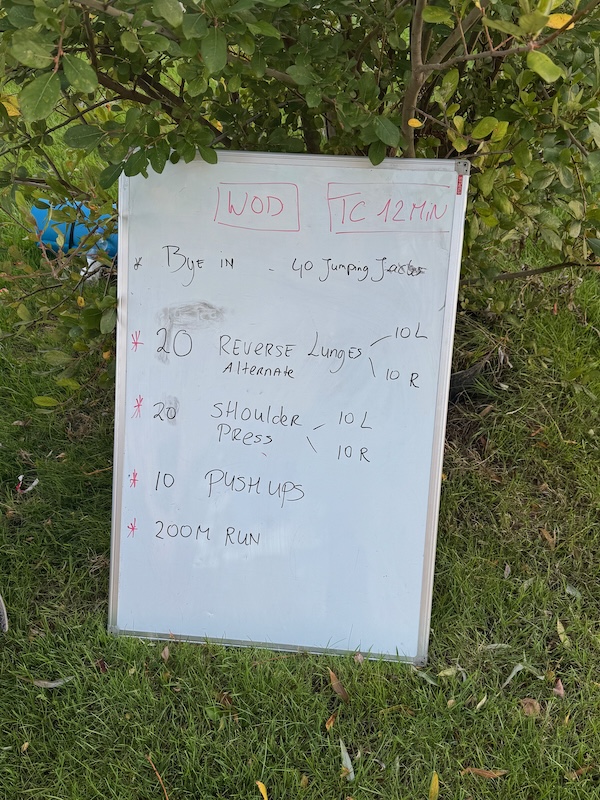 WOD TC 12 MIN
* BYE IN - 40 Jumping Jacks
* 20 REVERSE Lunges 10 L
Alternate 10 R
* 20 SHOULDER 10 L
PRESS 10 R
* 10 PUSH UPS
* 200M RUN